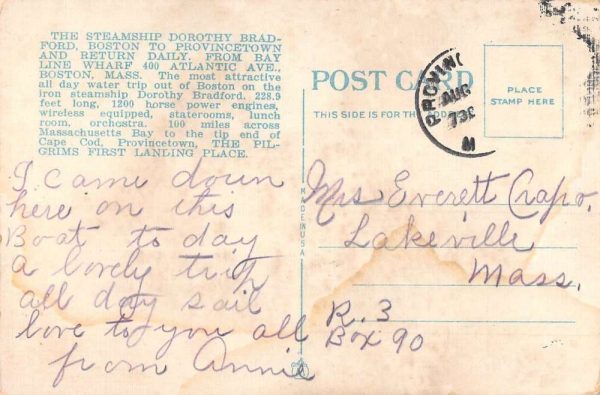 THE STEAMSHIP DOROTHY BRAD-
FORD, BOSTON TO PROVINCETOWN
AND RETURN DAILY. FROM BAY
LINE WHARF 400 ATLANTIC AVE.,
BOSTON, MASS. The most attractive
all day water trip out of Boston on the
iron steamship Dorothy Bradford. 228.9
feet long, 1200 horse power engines,
wireless equipped, staterooms, lunch
room, orchestra. 100 miles across
Massachusetts Bay to the tip end of
Cape Cod, Provincetown, THE PIL-
GRIMS FIRST LANDING PLACE.
I came down
here on this
Boat to day
a lovely trip
all day sail
love to you all
from Annie
MADE IN USA
POST CARD
THIS SIDE IS FOR THE ADDRESS
PROVINC
AUG
M
PLACE
STAMP HERE
Mrs Everett Crapo.
Lakeville
Mass.
R.3
Box 90